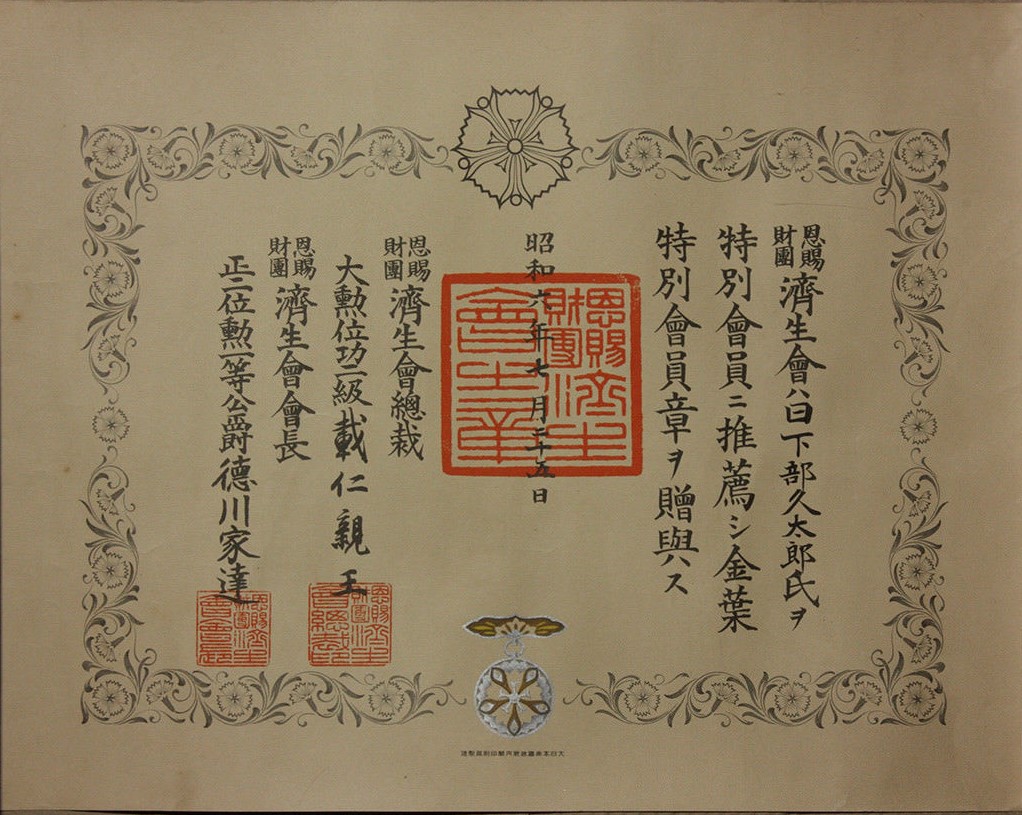 恩賜財團濟生會ハ日下部久太郎氏ヲ
特別會員ニ推薦シ金葉
特別會員章ヲ贈與ス
昭和六年七月二十五日
恩賜財團濟生會總裁
大勲位功二級載仁親王
恩賜財團濟生會會長
正二位勲一等公爵德川家達
恩賜財團濟生會之章
恩賜財團濟生會總裁印